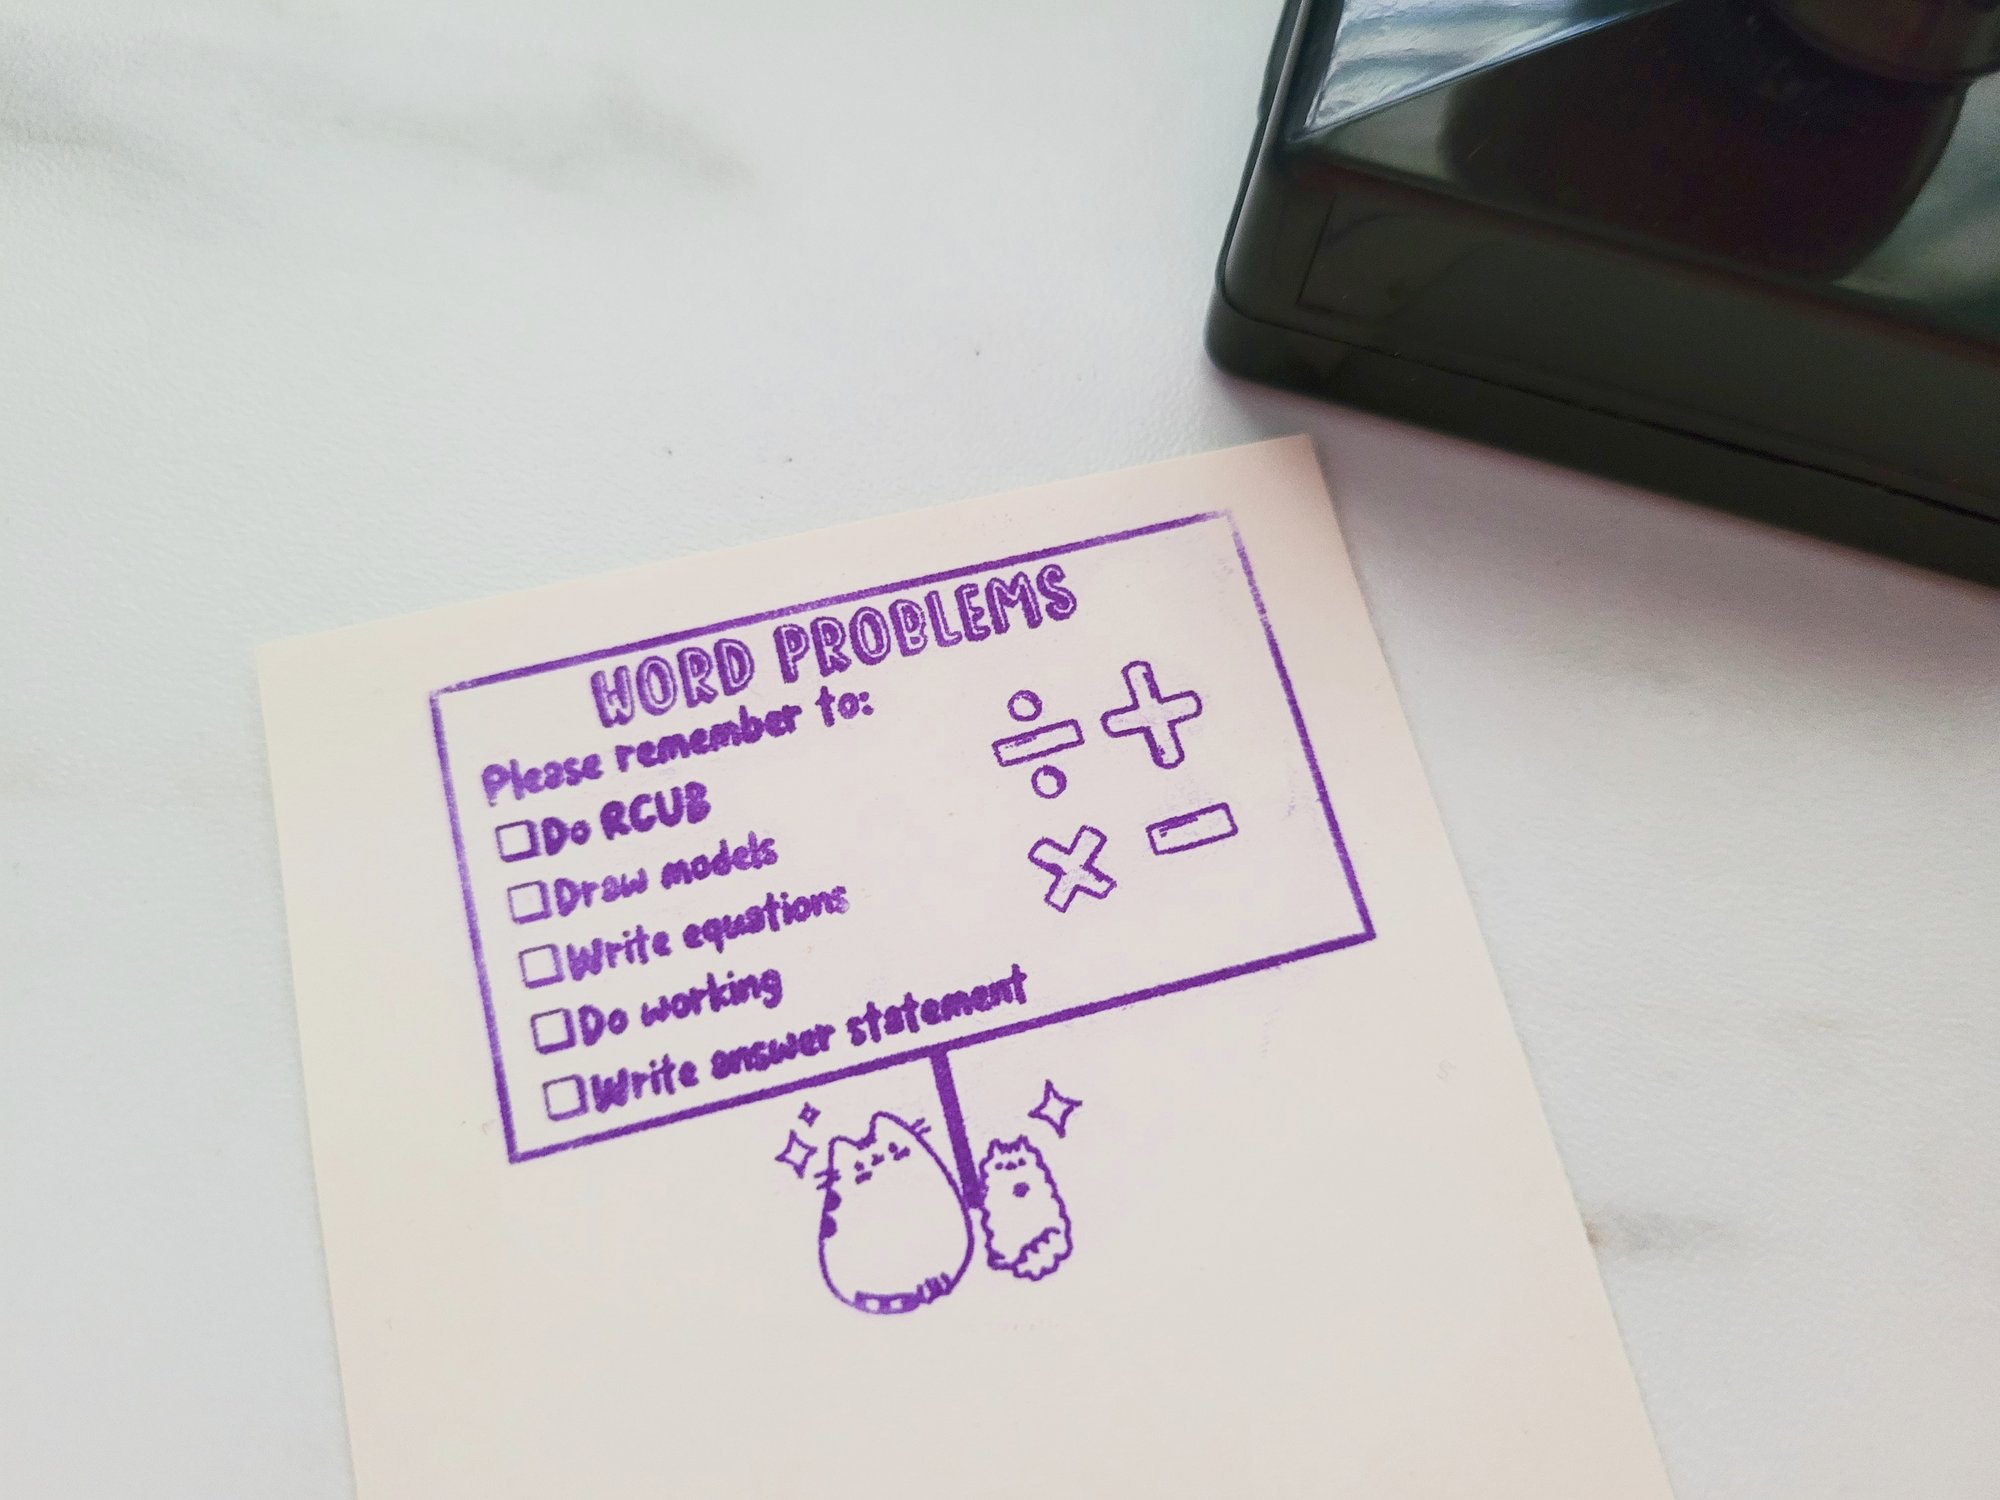 WORD PROBLEMS
Please remember to:
Do RCUB
Draw models
Write equations
Do working
Write answer statement
÷ +
× −